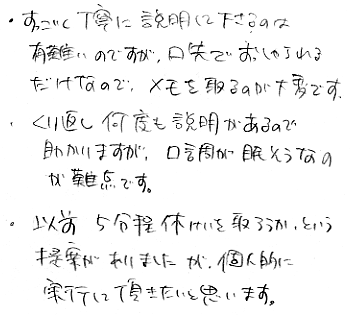 ・すっごく丁寧に説明して下さるのは
有難いのですが、口先でおしゃられる
だけなので、メモを取るのが大変です。
・くり返し何度も説明があるので
助かりますが、口調が眠そうなの
が難点です。
・以前 5分程休けいを取ろうか、という
提案がありましたが、個人的に
実行して頂きたいと思います。